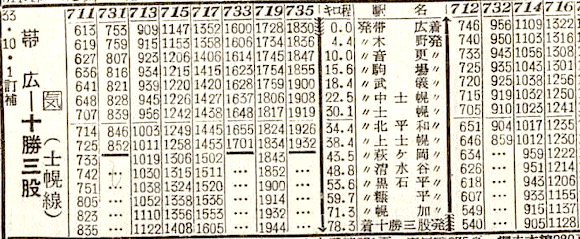 33・10・1訂補
帯広―十勝三股 気 (士幌線)
711 731 713 715 717 733 719 735 キロ程 駅名 712 732 714 716
613 753 909 1147 1352 1600 1728 1830 0.0 発帯広着 746 956 1109 1322
619 759 915 1153 1358 1606 1734 1836 4.4 〃木野発 740 950 1103 1316
627 807 923 1206 1406 1614 1745 1847 10.0 〃音更〃 733 943 1056 1308
636 816 934 1215 1415 1623 1754 1855 15.6 〃駒場〃 725 935 1047 1300
641 821 939 1220 1420 1628 1759 1900 18.4 〃武儀〃 720 925 1038 1256
648 828 945 1226 1427 1637 1806 1908 22.5 〃中士幌〃 715 919 1032 1250
707 839 956 1242 1438 1648 1817 1919 30.1 〃士幌〃 705 910 1023 1241
714 846 1003 1249 1445 1655 1824 1926 34.4 〃北平和〃 651 904 1017 1235
725 852 1011 1258 1453 1701 1834 1932 38.4 〃上士幌〃 646 859 1012 1230
733 1019 1306 1502 1843 43.5 〃萩ケ岡〃 634 … 959 1222
742 … 1030 1315 1511 … 1852 … 48.8 〃清水谷〃 626 … 951 1214
751 … 1038 1324 1520 … 1900 … 53.6 〃黒石平〃 618 … 943 1206
805 … 1052 1338 1535 … 1914 … 59.7 〃糠平〃 607 … 933 1155
823 … 1110 1356 1553 … 1932 … 71.3 〃幌加〃 549 … 915 1137
835 … 1122 1408 1605 … 1944 … 78.3 着十勝三股発 540 … 905 1128